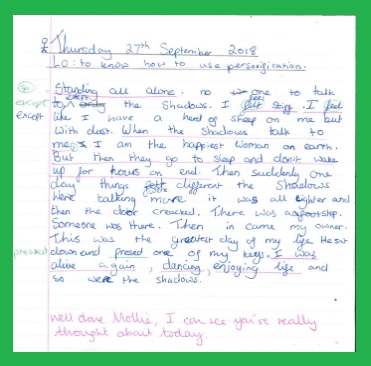 Thursday 27th September 2018
LO: to know how to use personification.
Standing all alone. no one to talk
except to except the shadows. I felt stiff. I feel
except like I have a herd of sheep on me but
with dust. When the shadows talk to
me I am the happiest woman on earth.
But then they go to sleep and don't wake
up for hours on end. Then suddenly one
day things felt different the shadows
were talking more it was all lighter and
then the door creacked. There was a footstep.
Someone was there. Then in came my owner.
This was the greatest day of my life. He sat
pressed down and presed one of my keys. I was
alive again, dancing, enjoying life and
so were the shadows.
well done Mollie, I can see you're really
thought about today